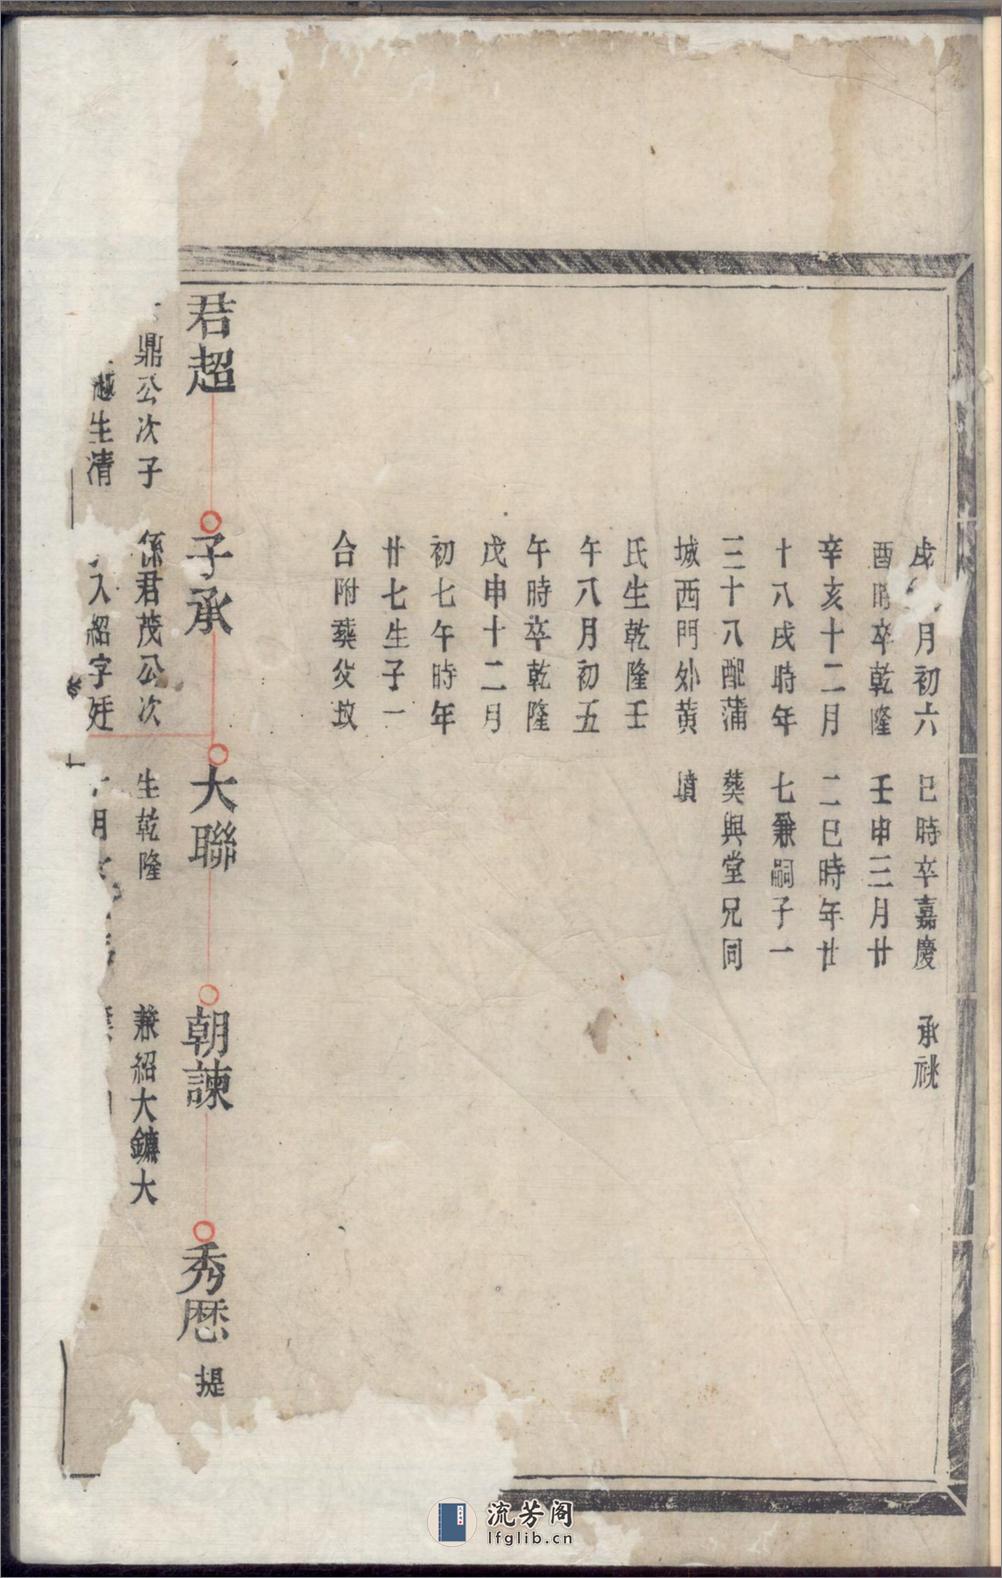 月初六
酉時卒乾隆
辛亥十二月
十八戌時年
三十八配蒲
城西門外黄
氏生乾隆壬
午八月初五
午時卒乾隆
戊申十二月
初七午時年
廿七生子一
合附葬父坟
巳時卒嘉慶
壬申三月廿
二巳時年廿
七兼嗣子一
葬與堂兄同
墳
承祧
君超
鼎公次子
生清
子承
係君茂公次
入紹字廷
大聯
生乾隆
月
朝諫
兼紹大鏞大
秀歴
提
流芳阁
lfglib.cn